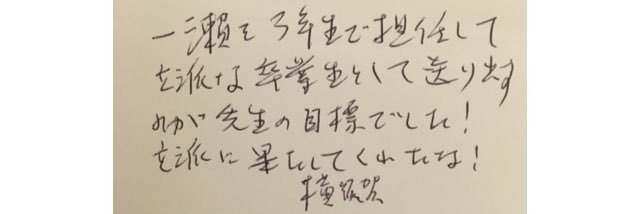 一瀬を3年生で担任して
立派な卒業生として送り出す
のが先生の目標でした!
立派に果たしてくれたな!
横須賀